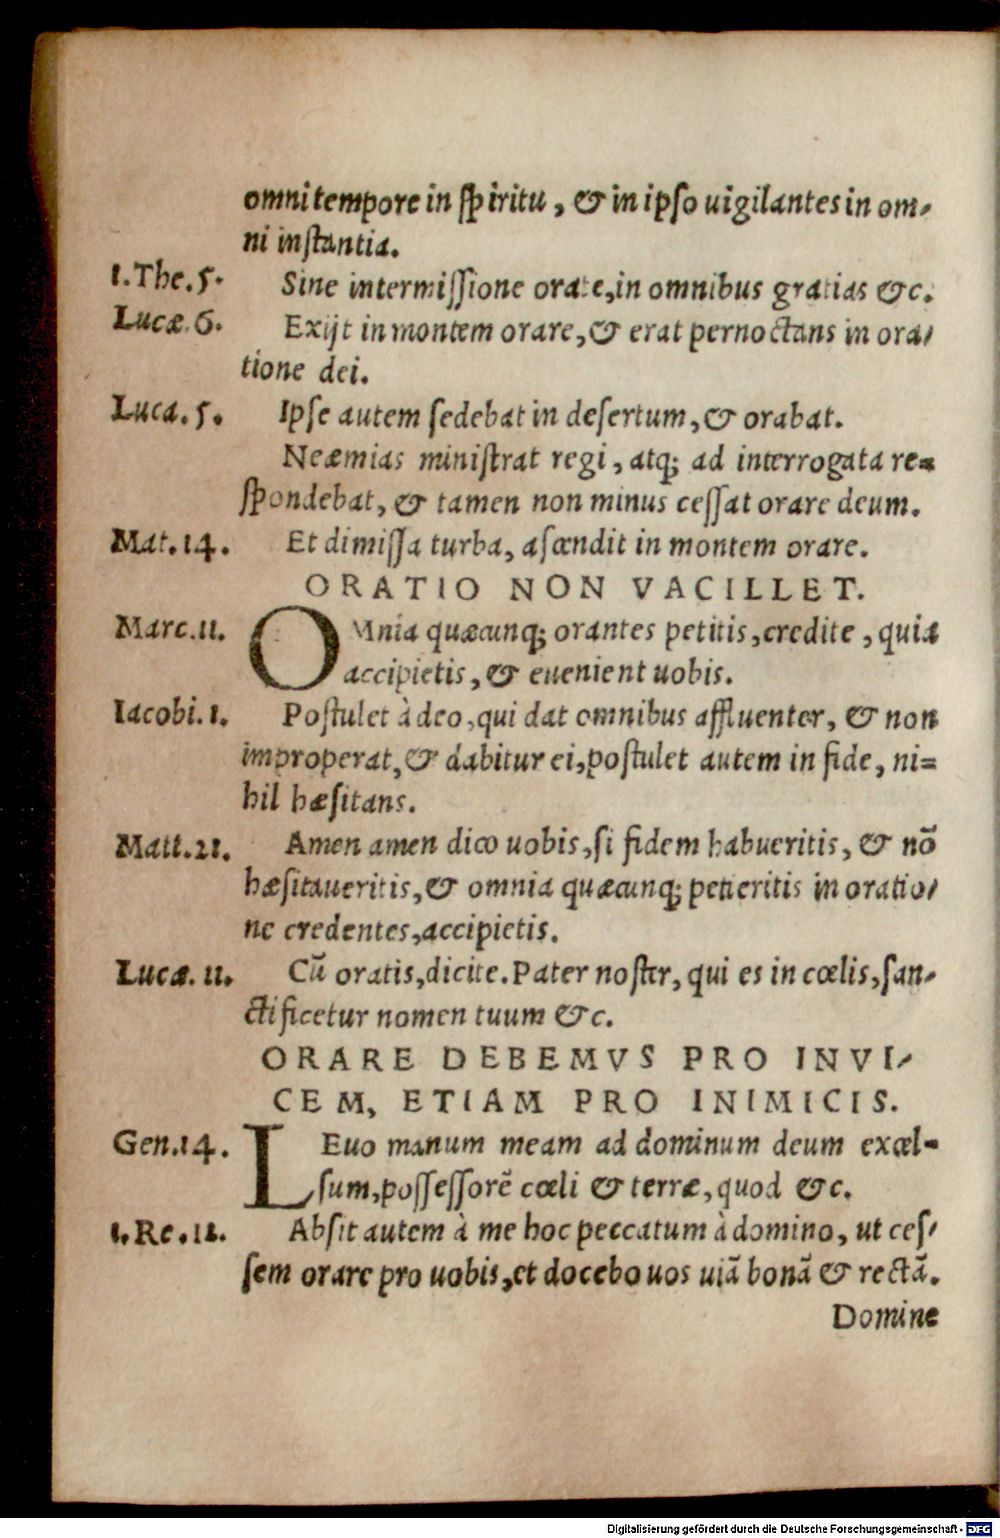 omni tempore in ſpiritu, & in ipſo uigilantes in om-
ni inſtantia.
1.The.5. Sine intermiſſione orate, in omnibus gratias &c.
Lucæ.6. Exijt in montem orare, & erat pernoctans in ora-
tione dei.
Luca.5. Ipſe autem ſedebat in deſertum, & orabat.
Neæmias miniſtrat regi, atq; ad interrogata re-
ſpondebat, & tamen non minus ceſſat orare deum.
Mat.14. Et dimiſſa turba, aſcendit in montem orare.
ORATIO NON VACILLET.
Marc.11. OMnia quæcunq; orantes petitis, credite, quia
accipietis, & euenient uobis.
Iacobi.1. Poſtulet à deo, qui dat omnibus affluenter, & non
improperat, & dabitur ei, poſtulet autem in fide, ni=
hil hæſitans.
Matt.21. Amen amen dico uobis, ſi fidem habueritis, & nō
hæſitaueritis, & omnia quæcunq; petieritis in oratio-
ne credentes, accipietis.
Lucæ.11. Cū oratis, dicite. Pater noſter, qui es in cœlis, ſan-
ctificetur nomen tuum &c.
ORARE DEBEMVS PRO INVI-
CEM, ETIAM PRO INIMICIS.
Gen.14. LEuo manum meam ad dominum deum excel-
ſum, poſſeſſorē cœli & terræ, quod &c.
1.Re.12. Abſit autem à me hoc peccatum à domino, ut ceſ-
ſem orare pro uobis, et docebo uos uiā bonā & rectā.
Domine
Digitalisierung gefördert durch die Deutsche Forschungsgemeinschaft - DFG